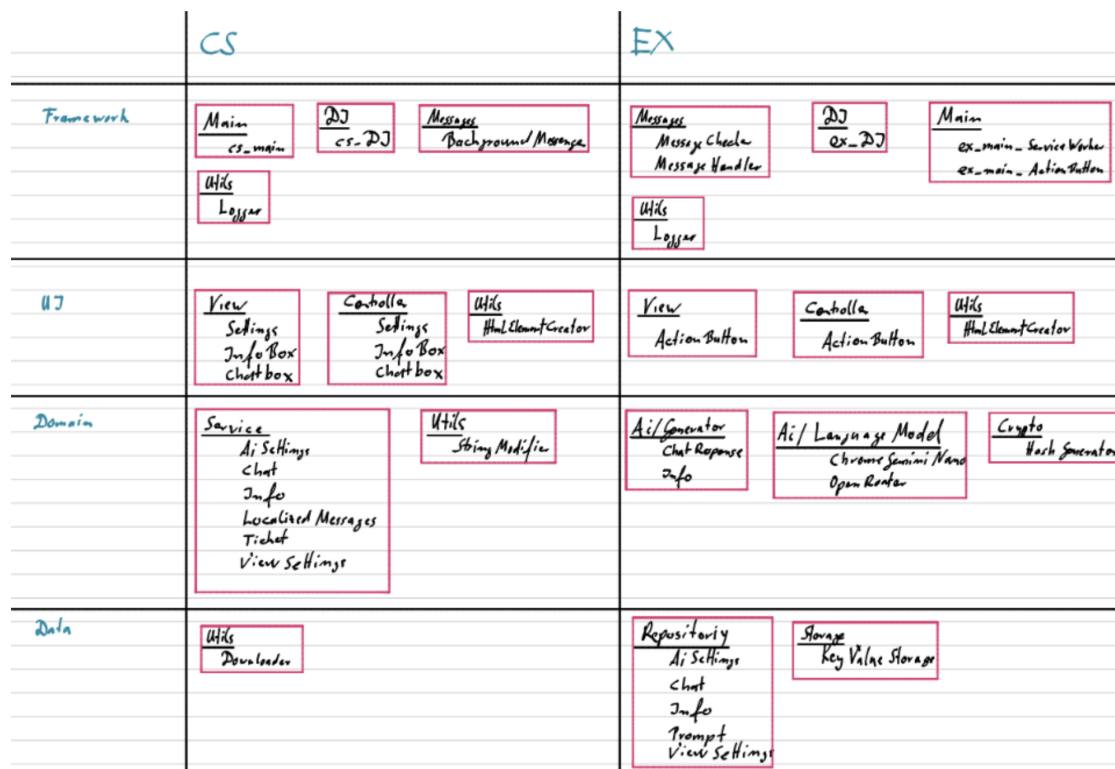 CS
EX
Framework
Main
cs_main
DI
cs_DI
Messages
Background Messenger
Utils
Logger
Messages
Message Checker
Message Handler
DI
ex_DI
Main
ex_main_ServiceWorker
ex_main_ActionButton
Utils
Logger
UI
View
Settings
Info Box
Chatbox
Controller
Settings
Info Box
Chatbox
Utils
HtmlElementCreator
View
Action Button
Controller
Action Button
Utils
HtmlElementCreator
Domain
Service
Ai Settings
Chat
Info
Localized Messages
Ticket
View Settings
Utils
String Modifier
Ai/Generator
Chat Reponse
Info
Ai/ Language Model
Chrome Gemini Nano
Open Router
Crypto
Hash Generator
Data
Utils
Downloader
Repositoriy
Ai Settings
Chat
Info
Prompt
View Settings
Storage
Key Value Storage